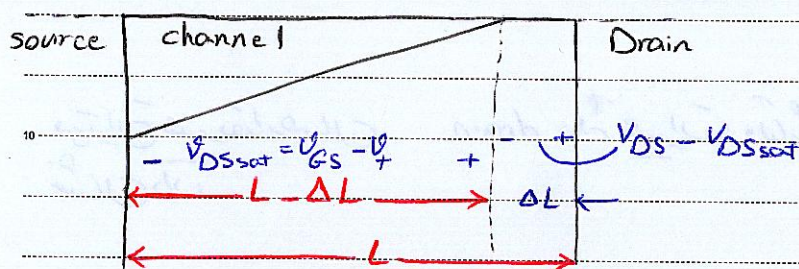 source channel Drain
10 - + - +
𝓋DSsat = 𝓋GS - 𝓋t VDS - VDSsat
L - ΔL ΔL
L